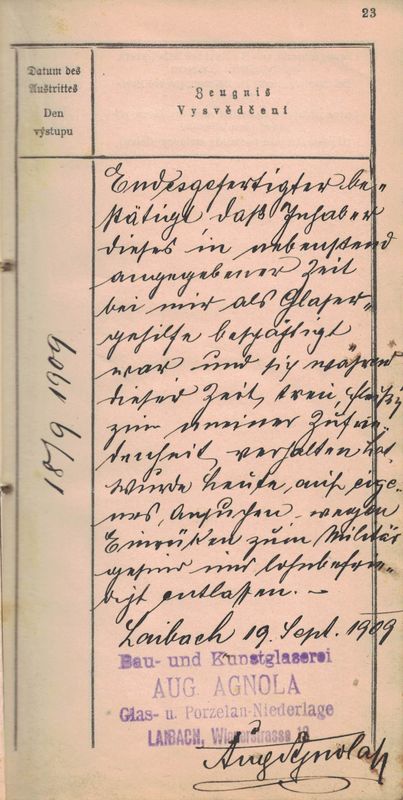 23
Datum des
Austrittes
Den
výstupu
Zeugnis
Vysvědčení
18/9 1909
Endesgefertigter be-
stätigt daß Inhaber
dieses in nebenstend
angegebener Zeit
bei mir als Glaser-
gehilfe beschäftigt
war und sich während
dieser Zeit, treu, fleißig
zu meiner Zufrie-
denheit, verhalten hat.
Wurde heute, auf eige-
nes, Ansuchen wegen
Einrüken zum Militär
gesund und lohnbefrie-
digt entlassen. –
Laibach 19. Sept. 1909
Bau- und Kunstglaserei
AUG. AGNOLA
Glas- u. Porzelan-Niederlage
LAIBACH, Wienerstrasse
Aug Agnola